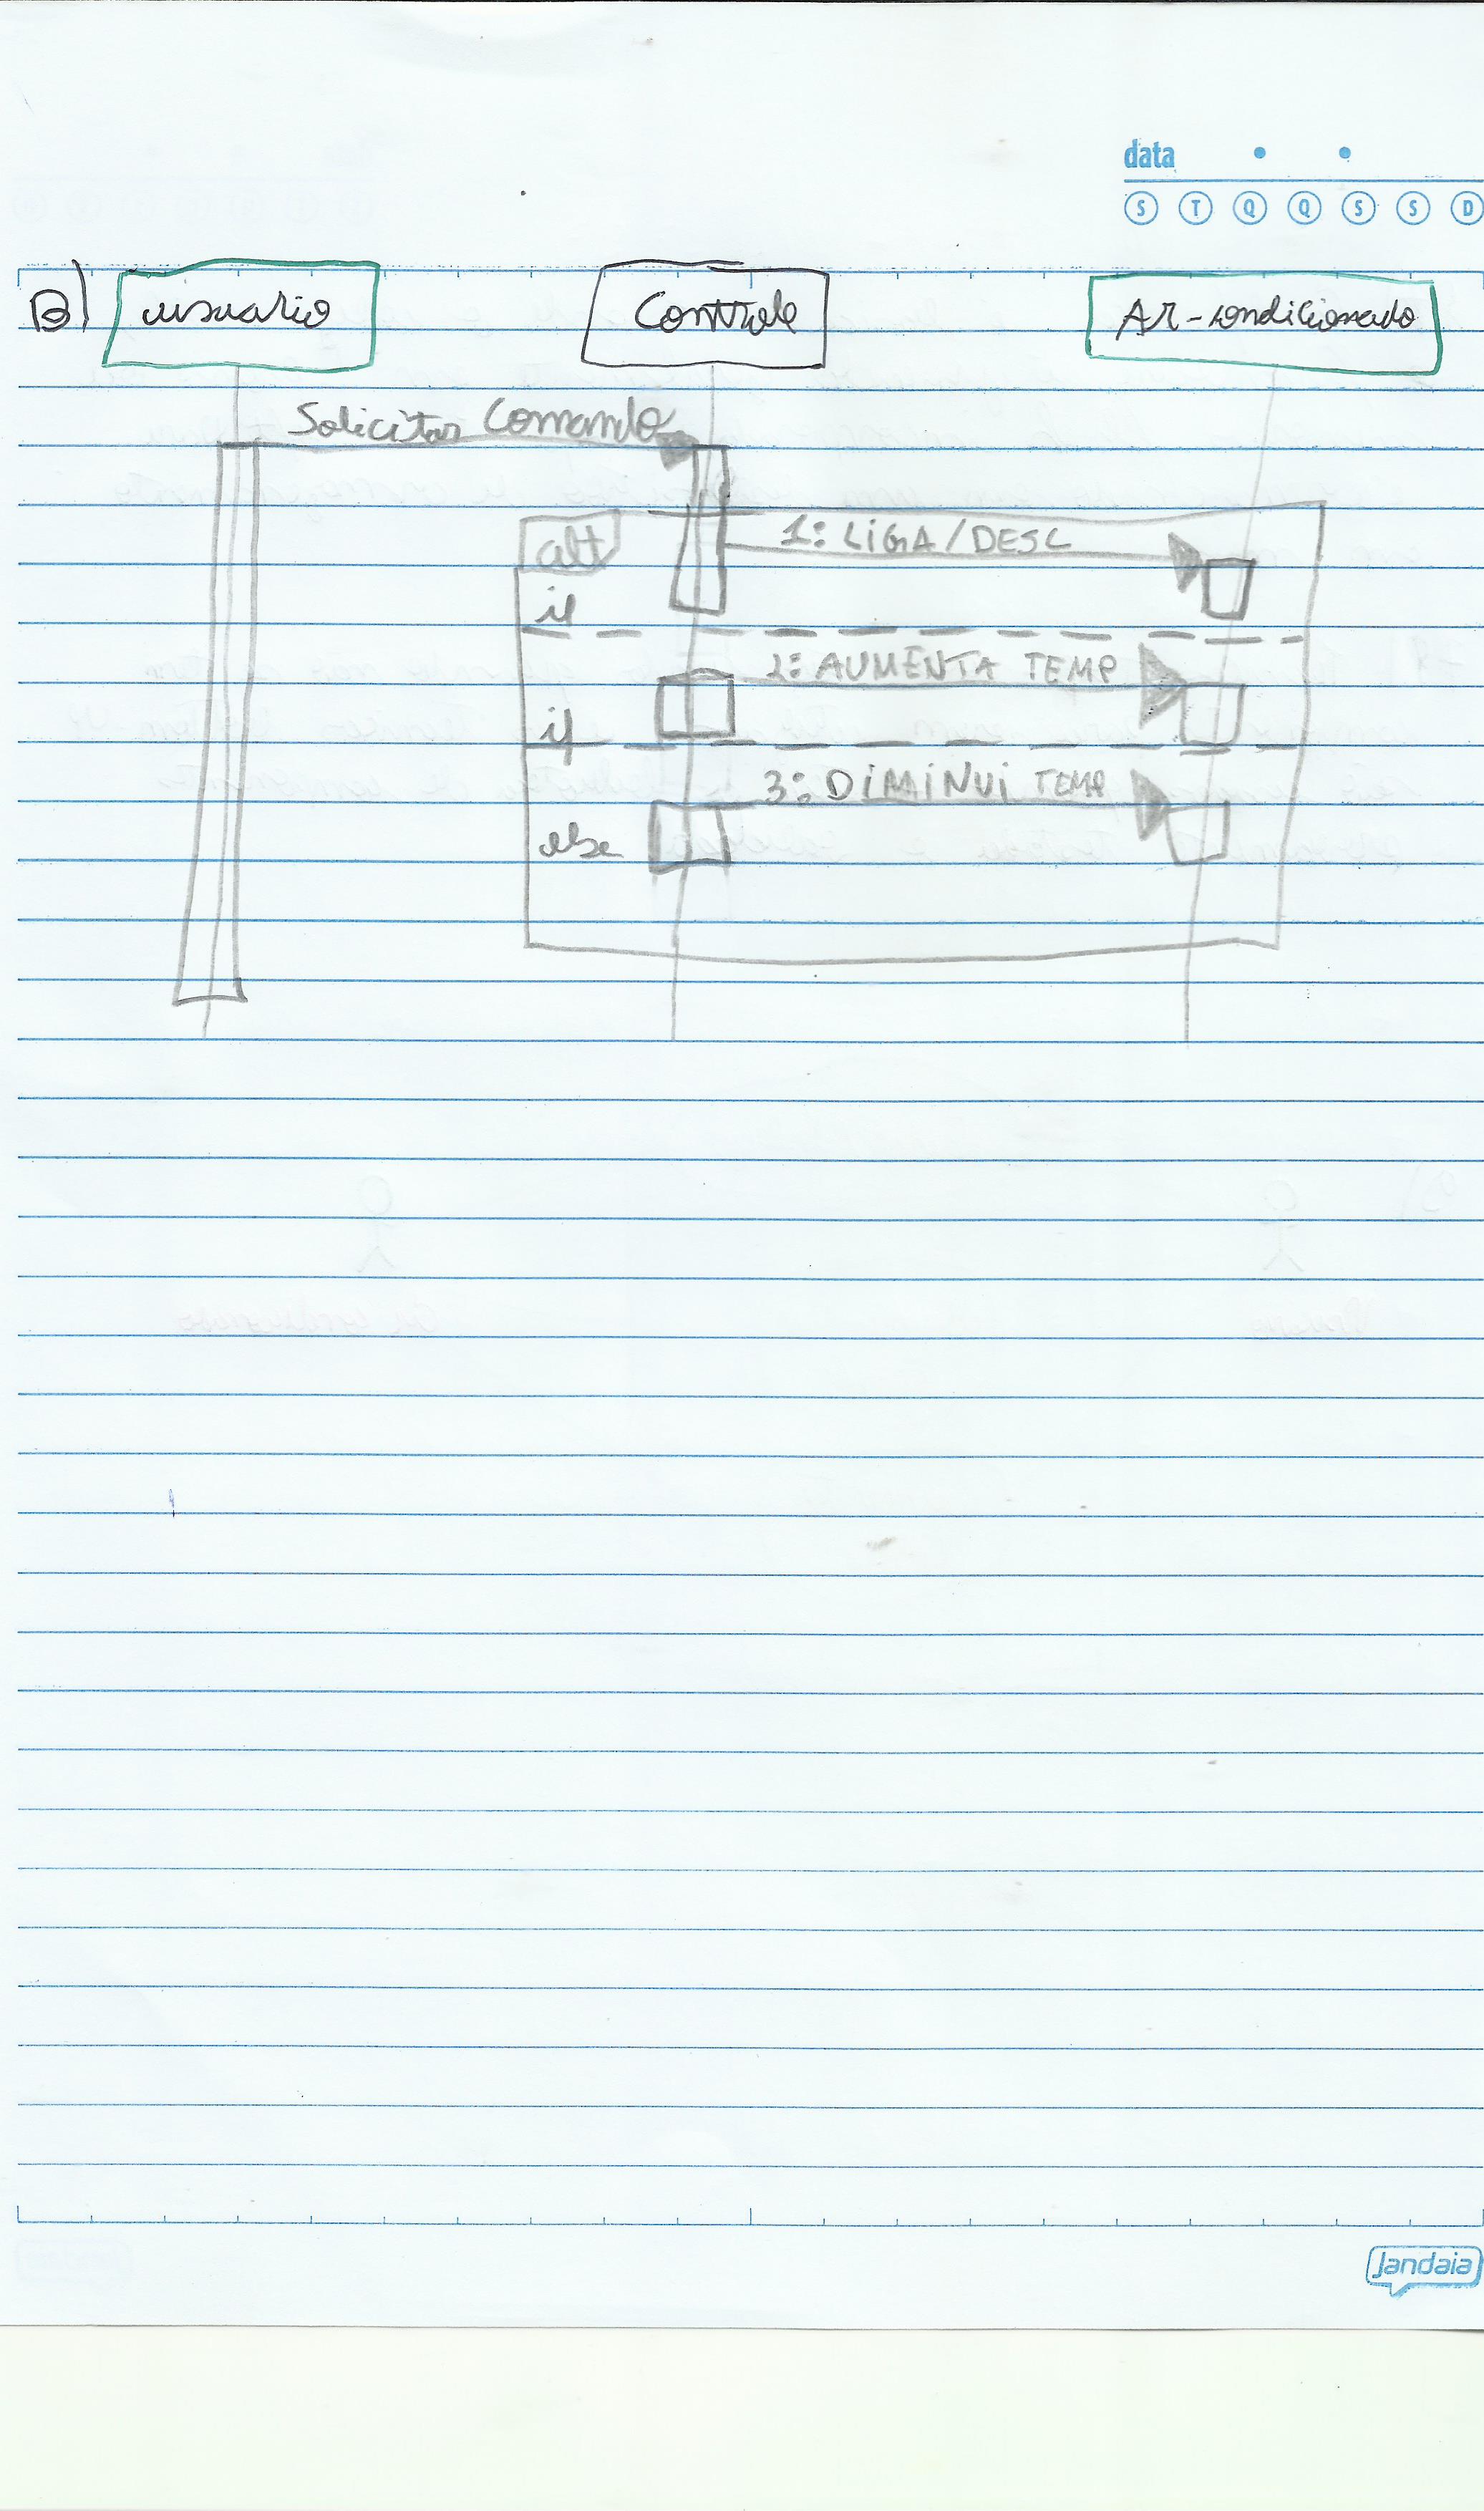 data
S T Q Q S S D
B) usuario Controle Ar-condicionado
Solicitar Comando
alt
1: LIGA/DESC
if
2: AUMENTA TEMP
if
3: DIMINUI TEMP
else
Jandaia